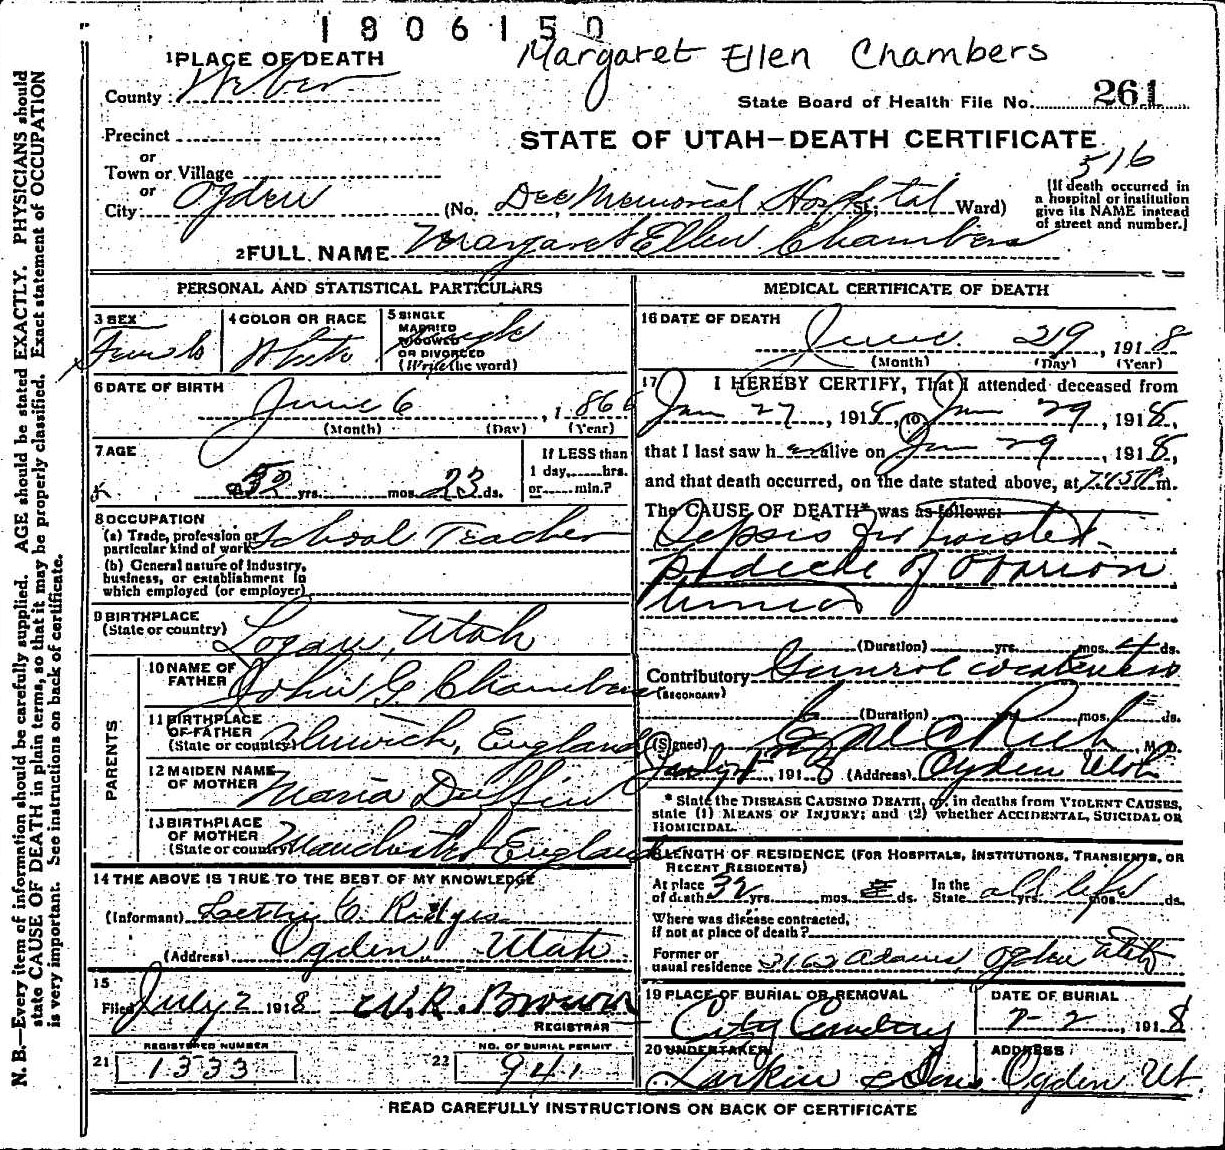 1806150
Margaret Ellen Chambers
1 PLACE OF DEATH
County Weber
State Board of Health File No. 261
Precinct
STATE OF UTAH—DEATH CERTIFICATE
or
Town or Village
516
or
City Ogden (No. Dee Memorial Hospital St; Ward)
(If death occurred in
a hospital or institution
give its NAME instead
of street and number.)
2 FULL NAME Margaret Ellen Chambers
PERSONAL AND STATISTICAL PARTICULARS
3 SEX
Female
4 COLOR OR RACE
White
5 SINGLE
MARRIED
WIDOWED
OR DIVORCED
(Write the word)
Single
6 DATE OF BIRTH
June 6, 1866
(Month) (Day) (Year)
7 AGE
52 yrs. mos. 23 ds.
If LESS than
1 day, hrs.
or min.?
8 OCCUPATION
(a) Trade, profession or
particular kind of work School Teacher
(b) General nature of industry,
business, or establishment in
which employed (or employer)
9 BIRTHPLACE
(State or country) Logan, Utah
PARENTS
10 NAME OF
FATHER John G. Chambers
11 BIRTHPLACE
OF FATHER
(State or country) England
12 MAIDEN NAME
OF MOTHER Maria Duffin
13 BIRTHPLACE
OF MOTHER
(State or country) Manchester England
14 THE ABOVE IS TRUE TO THE BEST OF MY KNOWLEDGE
(Informant) Lettie C.
(Address) Ogden, Utah
15
Filed July 2 1918 W. R. Brown
REGISTRAR
21 REGISTERED NUMBER
1333
22 NO. OF BURIAL PERMIT
941
MEDICAL CERTIFICATE OF DEATH
16 DATE OF DEATH
June 29, 1918
(Month) (Day) (Year)
17 I HEREBY CERTIFY, That I attended deceased from
Jun 27, 1918, to Jun 29, 1918,
that I last saw her alive on Jun 29, 1918,
and that death occurred, on the date stated above, at m.
The CAUSE OF DEATH* was as follows:
Sepsis twisted
pedicle of ovarian
tumor
(Duration) yrs. mos. ds.
Contributory
(SECONDARY)
(Duration) yrs. mos. ds.
(Signed) Rich, M. D.
July 1, 1918 (Address) Ogden Utah
* State the DISEASE CAUSING DEATH, or, in deaths from VIOLENT CAUSES,
state (1) MEANS OF INJURY; and (2) whether ACCIDENTAL, SUICIDAL OR
HOMICIDAL.
18 LENGTH OF RESIDENCE (FOR HOSPITALS, INSTITUTIONS, TRANSIENTS, OR
RECENT RESIDENTS)
At place
of death 32 yrs. mos. ds. In the
State all life yrs. mos. ds.
Where was disease contracted,
if not at place of death?
Former or
usual residence Adams, Ogden Utah
19 PLACE OF BURIAL OR REMOVAL
City Cemetery
DATE OF BURIAL
7-2, 1918
20 UNDERTAKER
Larkin & Sons
ADDRESS
Ogden Ut.
READ CAREFULLY INSTRUCTIONS ON BACK OF CERTIFICATE
N. B.—Every item of information should be carefully supplied. AGE should be stated EXACTLY. PHYSICIANS should
state CAUSE OF DEATH in plain terms, so that it may be properly classified. Exact statement of OCCUPATION
is very important. See instructions on back of certificate.